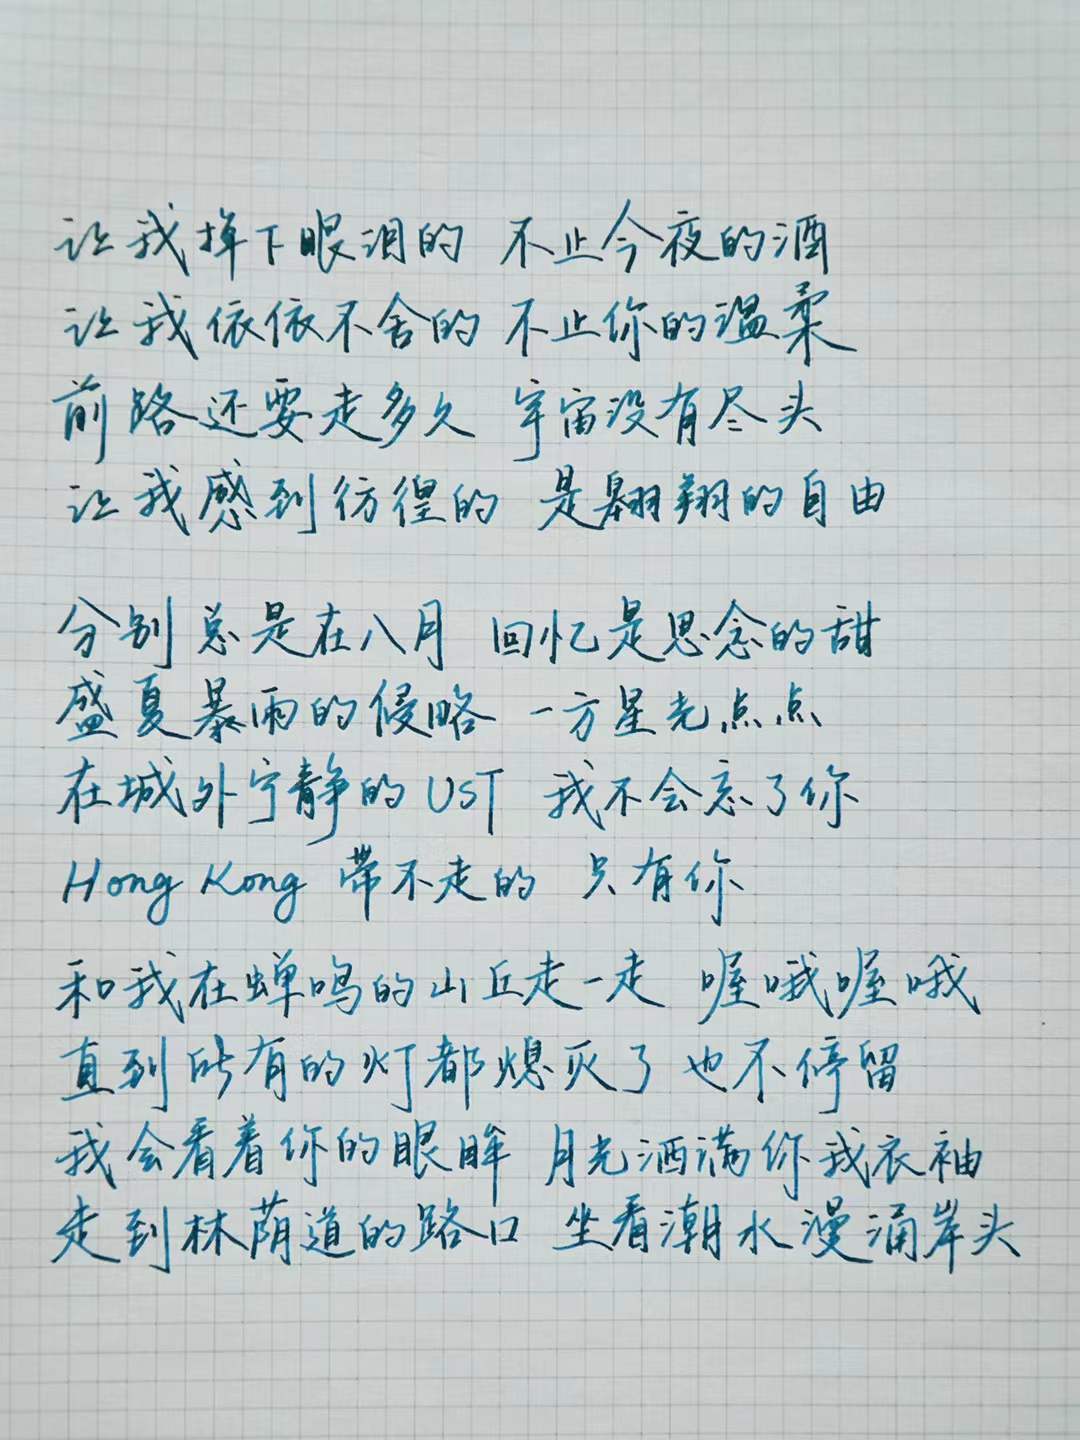 让我掉下眼泪的 不止今夜的酒
让我依依不舍的 不止你的温柔
前路还要走多久 宇宙没有尽头
让我感到彷徨的 是翱翔的自由
分别总是在八月 回忆是思念的甜
盛夏暴雨的侵略 一方星光点点
在城外宁静的UST 我不会忘了你
Hong Kong 带不走的 只有你
和我在蝉鸣的山丘走一走 喔哦喔哦
直到所有的灯都熄灭了 也不停留
我会看着你的眼眸 月光洒满你我衣袖
走到林荫道的路口 坐看潮水漫涌岸头